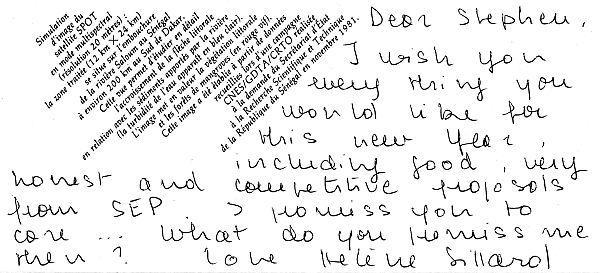 Simulation
d'image du
satellite SPOT
en mode multispectral
(résolution 20 mètres) -
la zone traitée (12 km X 24 km)
se situe sur l'embouchure
de la rivière Saloum au Sénégal
à environ 200 km au Sud de Dakar.
Cette vue permet d'étudier en détail
l'accroissement de la flèche littorale
en relation avec les sédiments apportés par la rivière
(la turbidité de l'eau apparaît en bleu clair).
L'image met en évidence la végétation littorale
et les forêts de mangroves (en rouge vif).
Cette image a été établie à partir de données
recueillies lors d'une campagne
CNES/GDTA/CRTO réalisée
à la demande du Secrétariat d'Etat
à la Recherche Scientifique et Technique
de la République du Sénégal en novembre 1981.
Dear Stephen,
I wish you
every thing you
would like for
this new Year,
including good, very
honest and competitive proposals
from SEP. I promiss you to
care ... What do you promiss me
then? Love Hélène Sillard